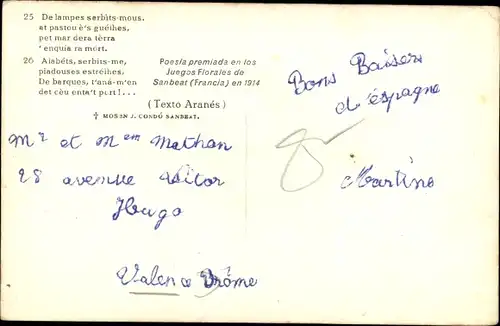 25 De lampes serbìts-mous,
at pastou è's guéihes,
pet mar dera tèrra
'enquia ra mort.
26 Alabéts, serbits-me,
piadouses estréihes,
De barques, t'aná-m'en
det cèu enta't port!...
Poesía premiada en los
Juegos Florales de
Sanbeat (Francia) en 1914
(Texto Aranés)
† MOSEN J. CONDÓ SANBEAT.
Bons Baisers
d'éspagne
Martine
Mr et Mem Mathon
28 avenue Victor
Hugo
Valence Drôme